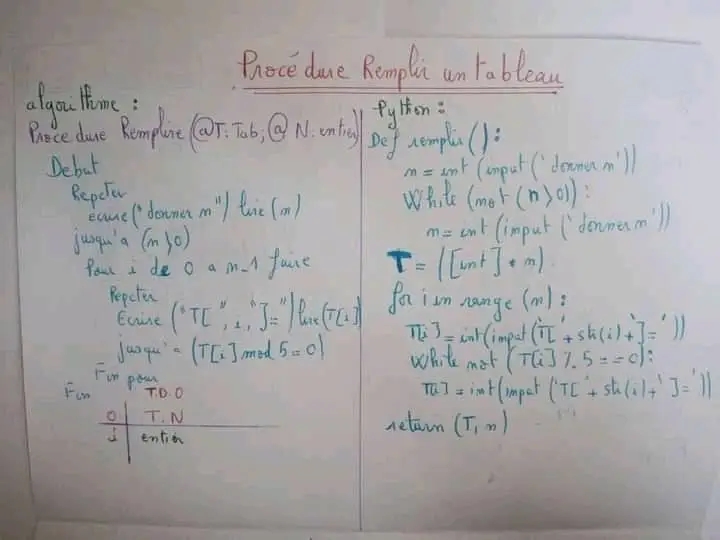 Procédure Remplir un tableau
algorithme :
Procedure Remplire (@T: Tab; @ N: entier)
Debut
Repeter
ecrire ("donner n") lire (n)
jusqu'a (n>0)
Pour i de 0 a n-1 faire
Repeter
Ecrire ("T[", i, "]=") lire (T[i])
jusqu'= (T[i] mod 5=0)
Fin pour
Fin
T.D.O
O T.N
i entier
Python :
Def remplir () :
n = int (input ('donner n'))
While (not (n>0)) :
n = int (input ('donner n'))
T = ([int] * n)
for i in range (n) :
T[i] = int (input ('T[' + str(i) + ']='))
While not (T[i] % 5 == 0) :
T[i] = int (input ('T[' + str(i) + ']='))
return (T, n)